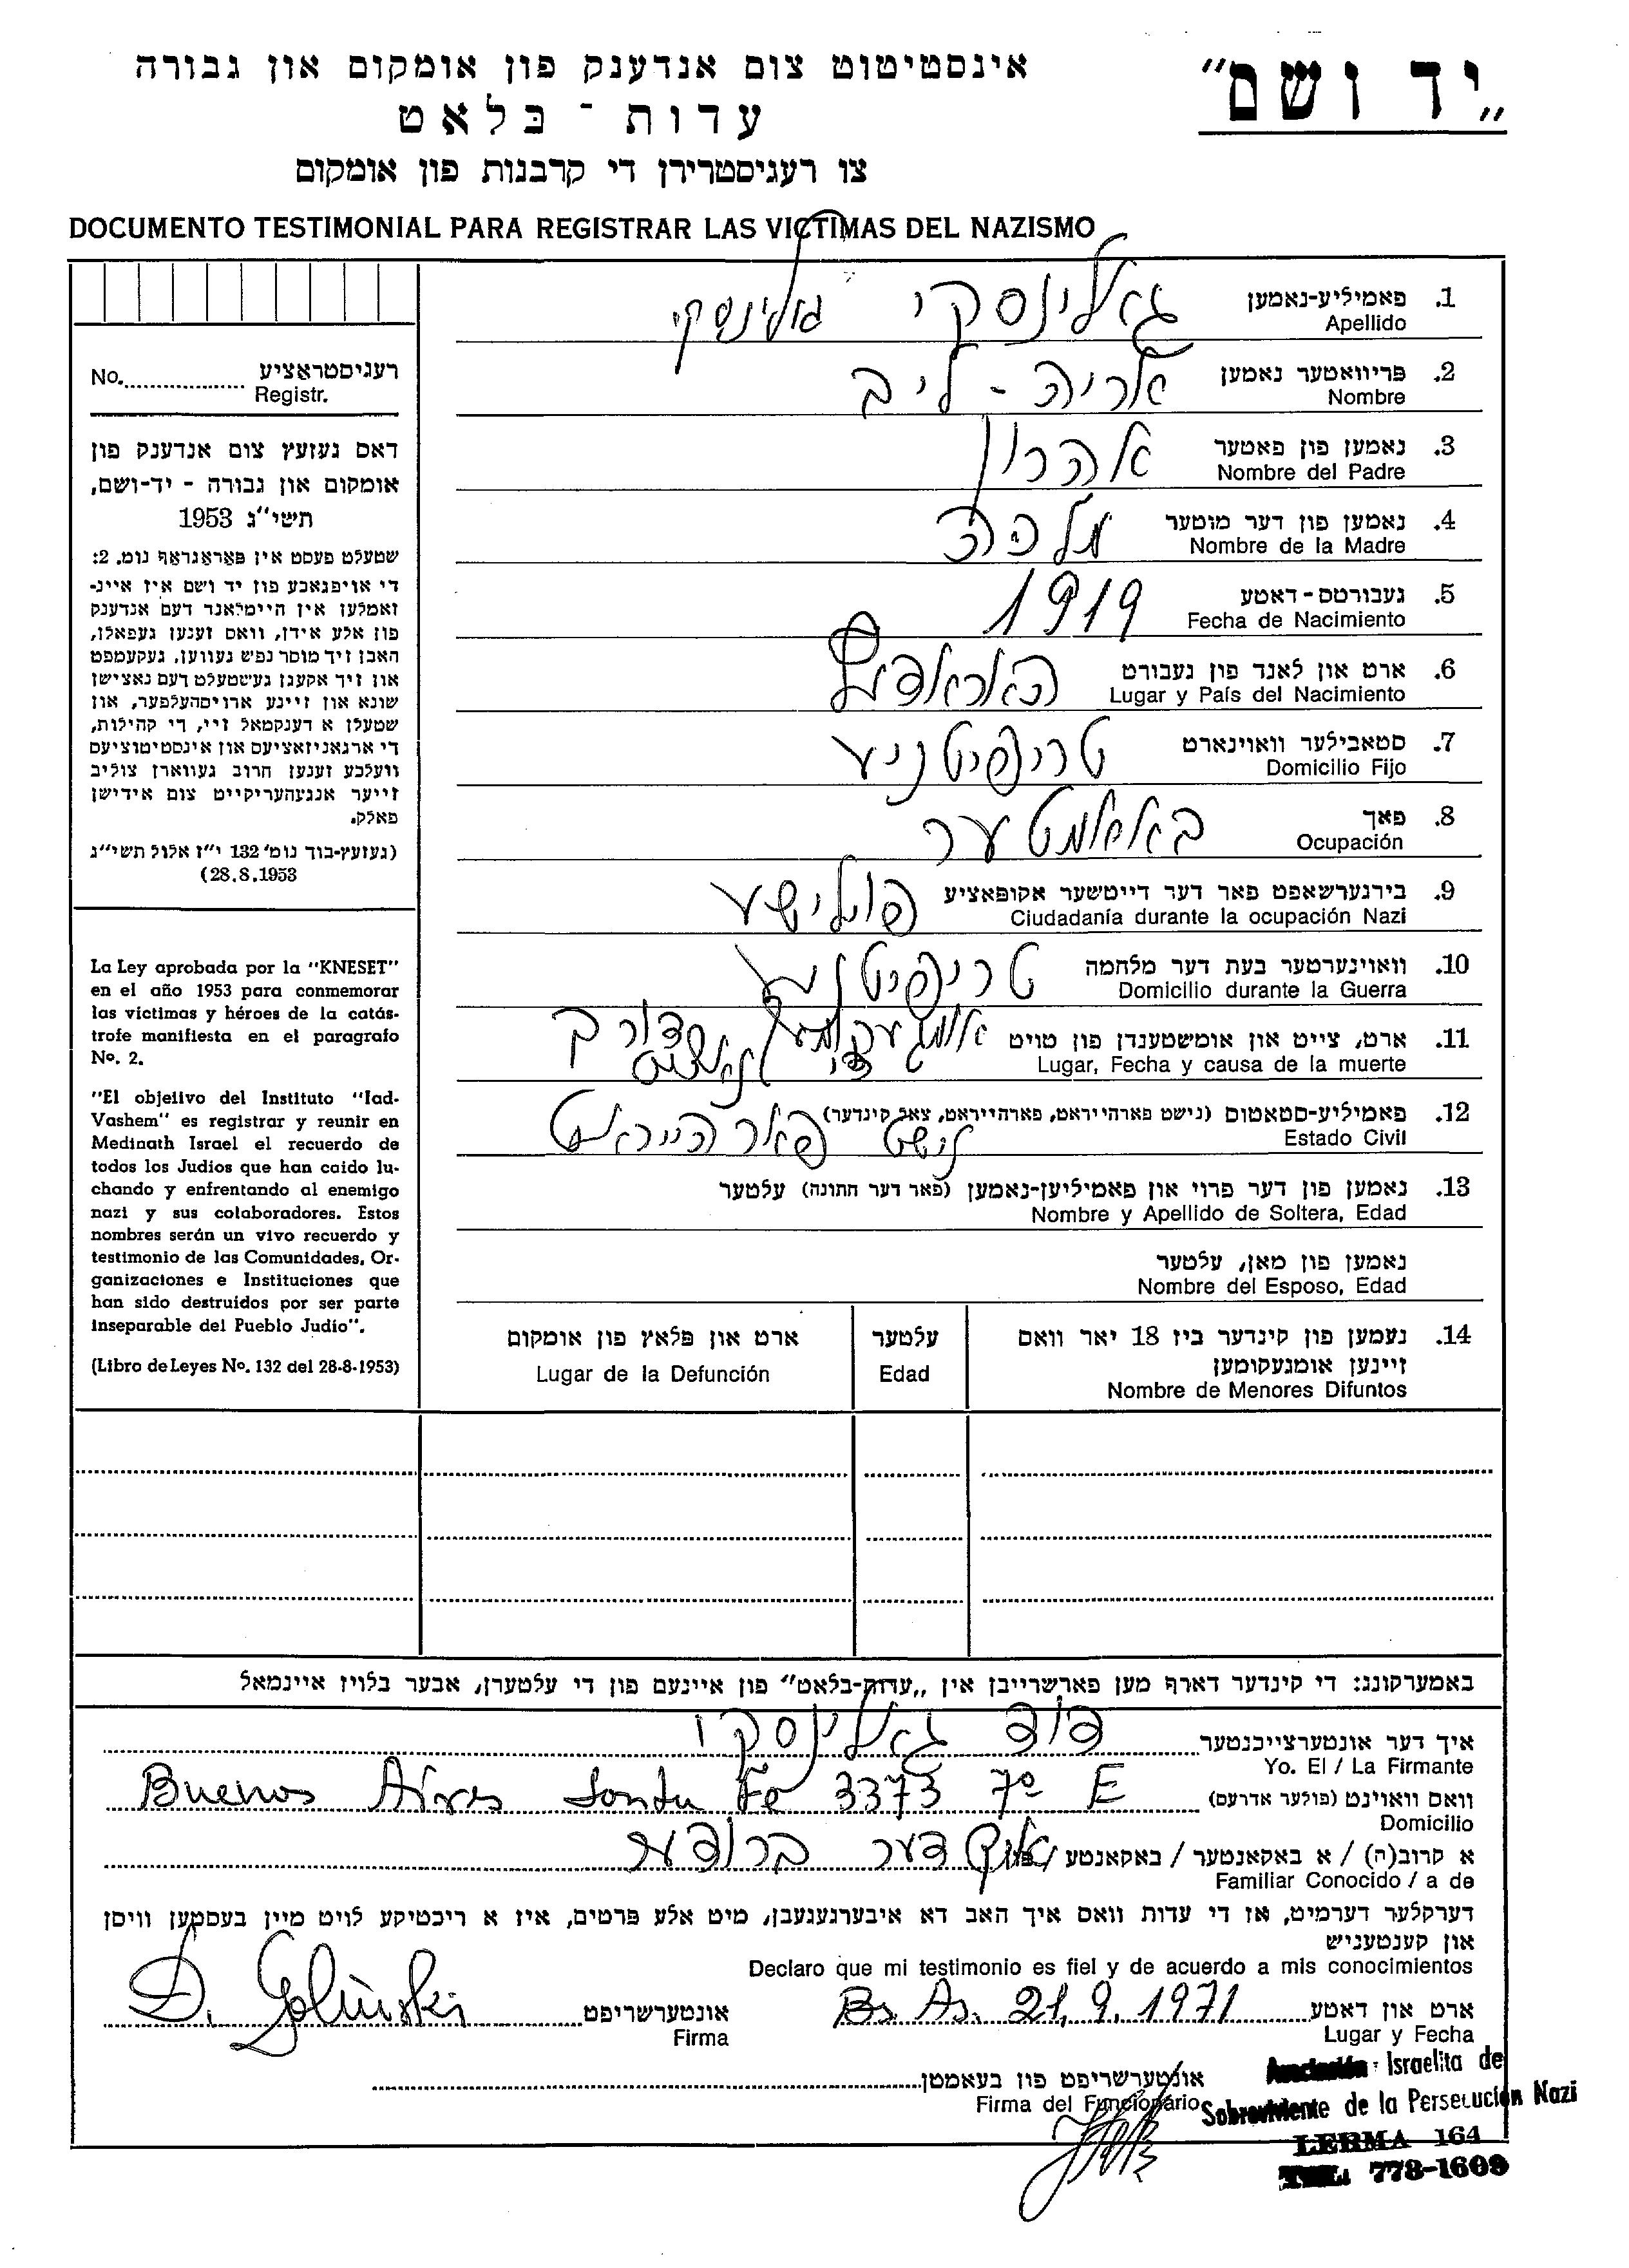 „יד ושם"
אינסטיטוט צום אנדענק פון אומקום און גבורה
עדות - בלאט
צו רעגיסטרירן די קרבנות פון אומקום
DOCUMENTO TESTIMONIAL PARA REGISTRAR LAS VICTIMAS DEL NAZISMO
רעגיסטראציע No.
Registr.
דאס געזעץ צום אנדענק פון
אומקום און גבורה - יד-ושם,
תשי"ג 1953
שטעלט פעסט אין פאראגראף נומ. 2:
די אויפגאבע פון יד ושם איז איינ-
זאמלען אין היימלאנד דעם אנדענק
פון אלע אידן, וואס זענען געפאלן,
האבן זיך מוסר נפש געווען, געקעמפט
און זיך אקעגן געשטעלט דעם נאצישן
שונא און זיינע ארויסהעלפער, און
שטעלן א דענקמאל זיי, די קהילות,
די ארגאניזאציעס און אינסטיטוציעס
וועלכע זענען חרוב געווארן צוליב
זייער אנגעהעריקייט צום אידישן
פאלק.
(געזעץ-בוך נומ' 132 י"ז אלול תשי"ג
28.8.1953)
La Ley aprobada por la "KNESET"
en el año 1953 para conmemorar
las víctimas y héroes de la catás-
trofe manifiesta en el paragrafo
Nº. 2.
"El objetivo del Instituto "Iad-
Vashem" es registrar y reunir en
Medinath Israel el recuerdo de
todos los Judíos que han caido lu-
chando y enfrentando al enemigo
nazi y sus colaboradores. Estos
nombres serán un vivo recuerdo y
testimonio de las Comunidades, Or-
ganizaciones e Instituciones que
han sido destruidos por ser parte
inseparable del Pueblo Judío".
(Libro de Leyes Nº. 132 del 28-8-1953)
1. פאמיליע-נאמען גאלינסקי גולינסקי
Apellido
2. פריוואטער נאמען אריה - ליב
Nombre
3. נאמען פון פאטער אהרון
Nombre del Padre
4. נאמען פון דער מוטער מלכה
Nombre de la Madre
5. געבורטס-דאטע 1919
Fecha de Nacimiento
6. ארט און לאנד פון געבורט
Lugar y País del Nacimiento
7. סטאבילער וואוינארט
Domicilio Fijo
8. פאך באאמטער
Ocupación
9. בירגערשאפט פאר דער דייטשער אקופאציע פוילישע
Ciudadanía durante la ocupación Nazi
10. וואוינערטער בעת דער מלחמה
Domicilio durante la Guerra
11. ארט, צייט און אומשטענדן פון טויט אומגעקומען דורך די נאציס
Lugar, Fecha y causa de la muerte
12. פאמיליע-סטאטוס (נישט פארהייראט, פארהייראט, צאל קינדער) נישט פארהייראט
Estado Civil
13. נאמען פון דער פרוי און פאמיליען-נאמען (פאר דער חתונה) עלטער
Nombre y Apellido de Soltera, Edad
נאמען פון מאן, עלטער
Nombre del Esposo, Edad
14. נעמען פון קינדער ביז 18 יאר וואס עלטער ארט און פלאץ פון אומקום
זיינען אומגעקומען Edad Lugar de la Defunción
Nombre de Menores Difuntos
באמערקונג: די קינדער דארף מען פארשרייבן אין „עדות-בלאט" פון איינעם פון די עלטערן, אבער בלויז איינמאל
איך דער אונטערצייכנטער דוד גאלינסקי
Yo. El / La Firmante
וואס וואוינט (פולער אדרעס) Buenos Aires Santa Fe 3373 7º E
Domicilio
א קרוב(ה) / א באקאנטער / באקאנטע / פון דער ברודער
Familiar Conocido / a de
דערקלער דערמיט, אז די עדות וואס איך האב דא איבערגעגעבן, מיט אלע פרטים, איז א ריכטיקע לויט מיין בעסטען וויסן
און קענטעניש
Declaro que mi testimonio es fiel y de acuerdo a mis conocimientos
ארט און דאטע Bs As. 21,9.1971 אונטערשריפט D. Golinski
Lugar y Fecha Firma
אונטערשריפט פון בעאמטן
Firma del Funcionário
Asociación Israelita de
Sobreviviente de la Persecución Nazi
LERMA 164
TEL. 773-1609